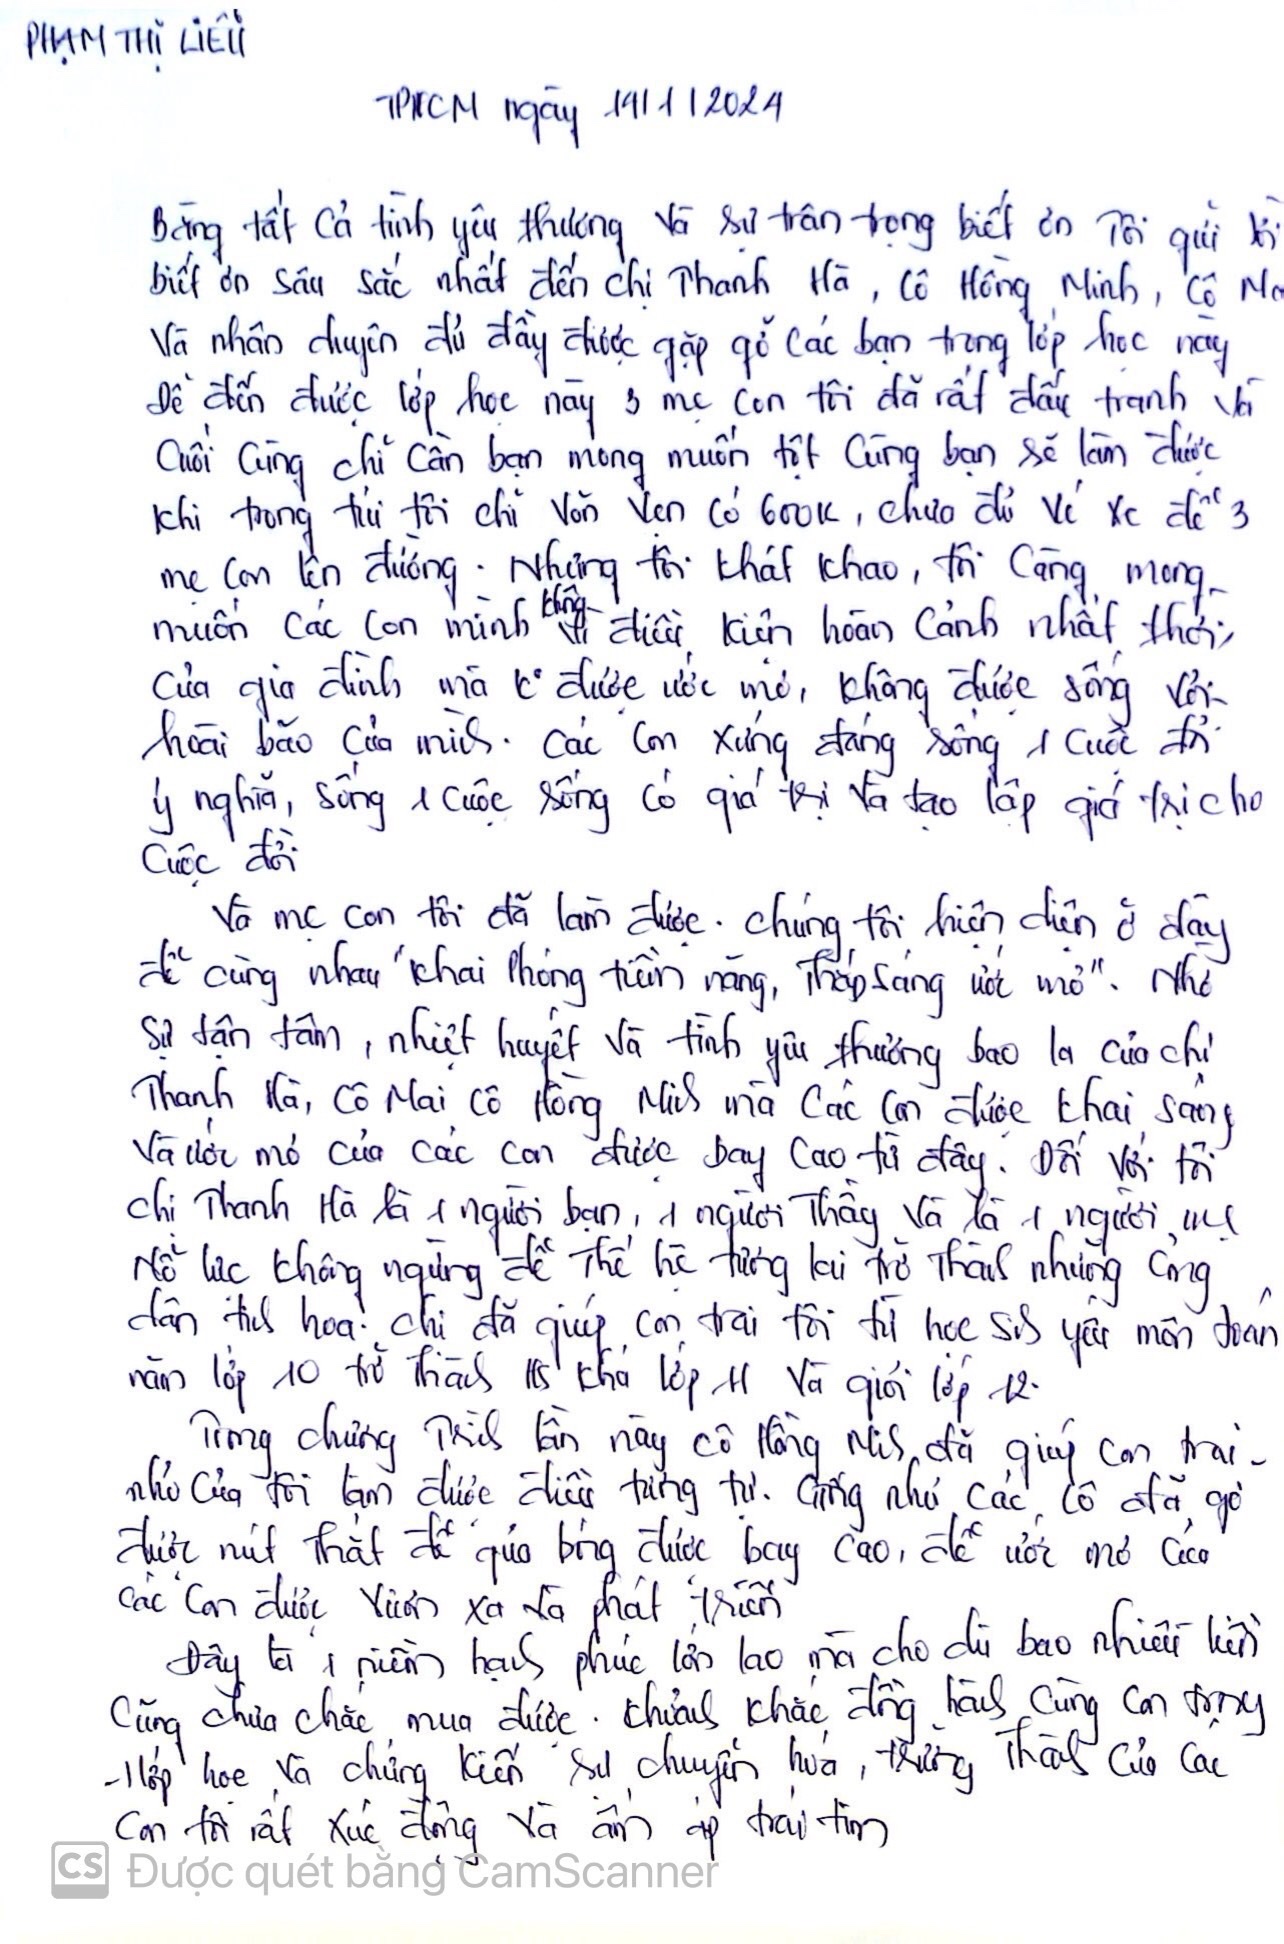 PHẠM THỊ LIỄU
TPHCM ngày 14/1/2024
Bằng tất cả tình yêu thương và sự trân trọng biết ơn Tôi gửi lời
biết ơn sâu sắc nhất đến chị Thanh Hà, Cô Hồng Minh, Cô
Và nhân duyên đủ đầy được gặp gỡ các bạn trong lớp học này
Để đến được lớp học này 3 mẹ con tôi đã rất đấu tranh và
Cuối cùng chỉ cần bạn mong muốn tột cùng bạn sẽ làm được
Khi trong túi tôi chỉ vỏn vẹn có 600K, chưa đủ vé xe để 3
mẹ con lên đường. Nhưng tôi khát khao, tôi càng mong
muốn các con mình không vì điều kiện hoàn cảnh nhất thời
của gia đình mà k° được ước mơ, không được sống với
hoài bão của mình. Các con xứng đáng sống 1 cuộc đời
ý nghĩa, sống 1 cuộc sống có giá trị và tạo lập giá trị cho
cuộc đời
Và mẹ con tôi đã làm được. Chúng tôi hiện diện ở đây
để cùng nhau "Khai phóng tiềm năng, Thắp sáng ước mơ". Nhờ
sự tận tâm, nhiệt huyết và tình yêu thương bao la của chị
Thanh Hà, Cô Mai Cô Hồng Minh mà các con được khai sáng
Và ước mơ của các con được bay cao từ đây. Đối với tôi
chị Thanh Hà là 1 người bạn, 1 người Thầy và là 1 người mẹ
Nỗ lực không ngừng để Thế hệ tương lai trở Thành những công
dân tinh hoa. Chị đã giúp con trai tôi từ học sinh yếu môn toán
năm lớp 10 trở Thành HS khá lớp 11 và giỏi lớp 12.
Trong chương Trình lần này cô Hồng Minh đã giúp con trai
nhỏ của tôi làm được điều tương tự. Cũng như các cô đã gỡ
được nút Thắt để quả bóng được bay cao, để ước mơ của
các con được vươn xa và phát triển
Đây là 1 niềm hạnh phúc lớn lao mà cho dù bao nhiêu tiền
cũng chưa chắc mua được. Khoảnh khắc đồng hành cùng con trong
lớp học và chứng kiến sự chuyển hoá, trưởng Thành của các
con tôi rất xúc động và ấm áp trái tim
CS Được quét bằng CamScanner